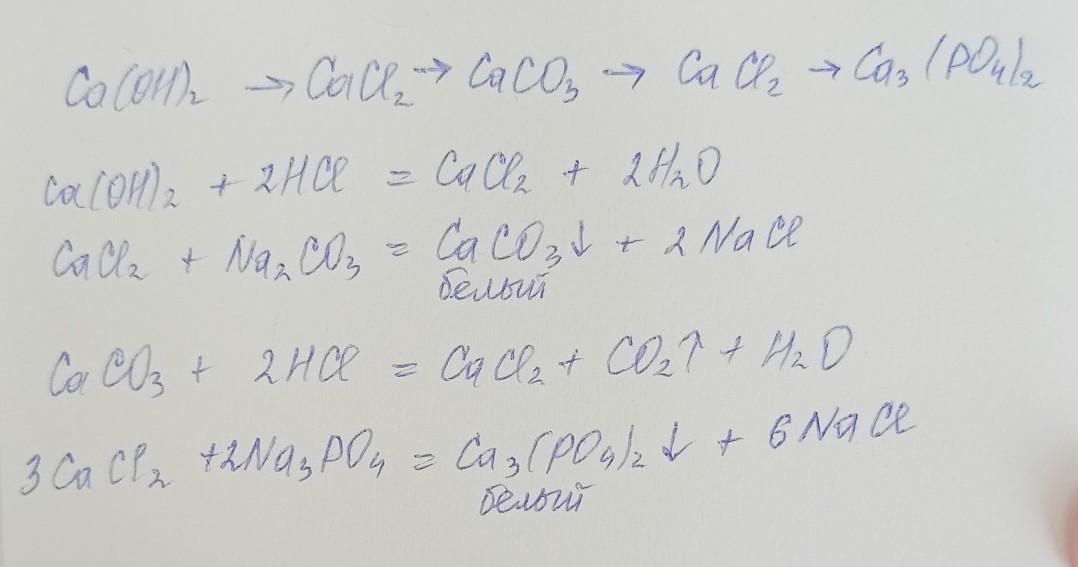 Ca(OH)₂ → CaCl₂ → CaCO₃ → CaCl₂ → Ca₃(PO₄)₂
Ca(OH)₂ + 2HCl = CaCl₂ + 2H₂O
CaCl₂ + Na₂CO₃ = CaCO₃↓ + 2NaCl
белый
CaCO₃ + 2HCl = CaCl₂ + CO₂↑ + H₂O
3CaCl₂ + 2Na₃PO₄ = Ca₃(PO₄)₂↓ + 6NaCl
белый